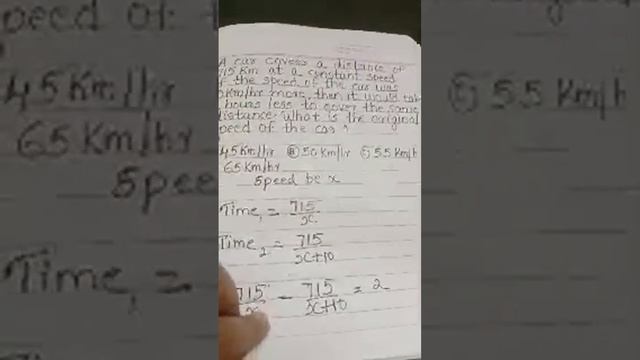 A car covers a distance of
715 Km at a constant speed
If the speed of the car was
Km/hr more, then it would take
hours less to cover the same
distance. What is the original
speed of the car?
45 Km/hr Ⓑ 50 Km/hr Ⓒ 55 Km/h
65 Km/hr
Speed be x
Time₁ = 715/x
Time₂ = 715/x+10
715/x - 715/x+10 = 2
45 Km/hr
65 Km/hr
Speed
Time₁ =
Ⓒ 55 Km/h